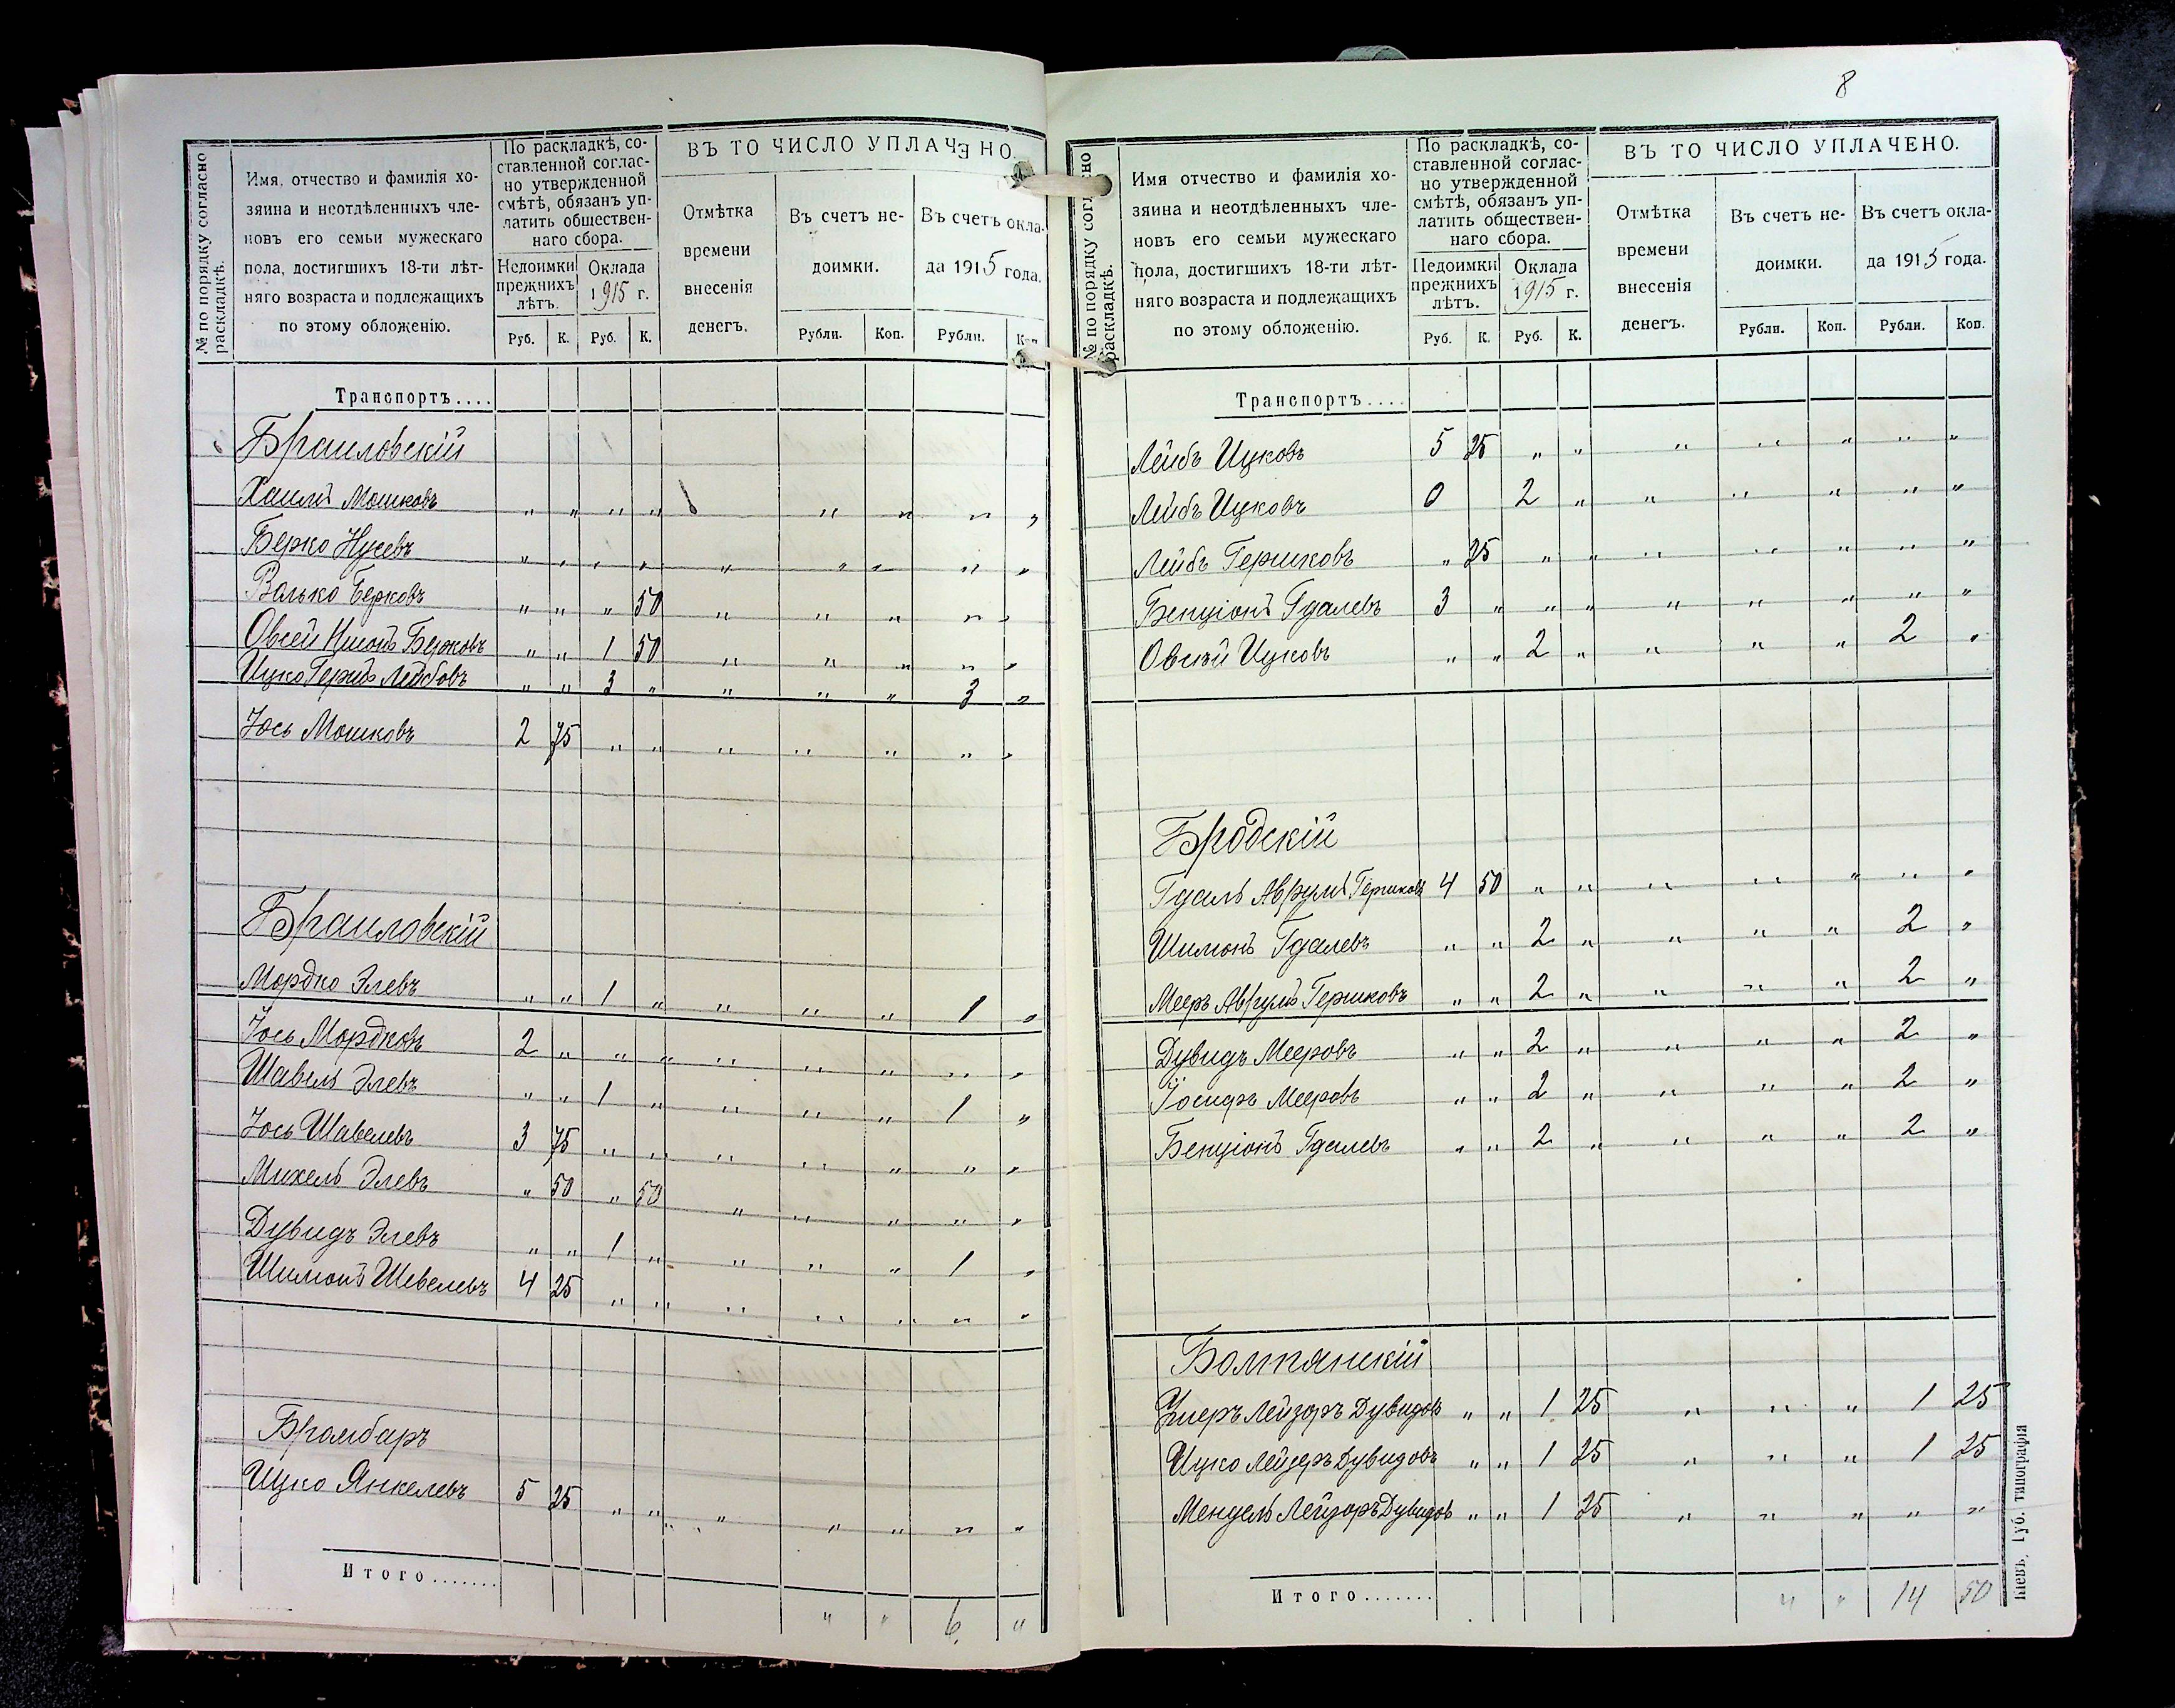 № по порядку согласно раскладкѣ.
Имя, отчество и фамилія хо-
зяина и неотдѣленныхъ чле-
новъ его семьи мужескаго
пола, достигшихъ 18-ти лѣт-
няго возраста и подлежащихъ
по этому обложенію.
По раскладкѣ, со-
ставленной соглас-
но утвержденной
смѣтѣ, обязанъ уп-
латить обществен-
наго сбора.
Недоимки прежнихъ лѣтъ.
Оклада 1915 г.
Руб. К. Руб. К.
ВЪ ТО ЧИСЛО УПЛАЧЕНО.
Отмѣтка времени внесенія денегъ.
Въ счетъ не-
доимки.
Въ счетъ окла-
да 1915 года.
Рубли. Коп. Рубли. Коп.
Транспортъ....
Браиловскій
Хаимъ Мошковъ " " " " " " " "
Берко Нусевъ " " " " " " " " "
Волько Берковъ " " " 50 " " " " "
Овсей Нисонъ Берковъ " " 1 50 " " " " "
Ицко Гершъ Лейбовъ " " 3 " " " " 3 "
Іось Мошковъ 2 75 " " " " " " "
Браиловскій
Мордко Элевъ " " 1 " " " " 1 "
Іось Мордковъ 2 " " " " " " " "
Шавель Элевъ " " 1 " " " " 1 "
Іось Шавелевъ 3 75 " " " " " " "
Михель Элевъ " 50 " 50 " " " " "
Дувидъ Элевъ " " 1 " " " " 1 "
Шимонъ Шевелевъ 4 25 " " " " " " "
Бромбаръ
Ицко Янкелевъ 5 25 " " " " " " "
Итого.......
" " 6 "
8
№ по порядку согласно раскладкѣ.
Имя отчество и фамилія хо-
зяина и неотдѣленныхъ чле-
новъ его семьи мужескаго
пола, достигшихъ 18-ти лѣт-
няго возраста и подлежащихъ
по этому обложенію.
По раскладкѣ, со-
ставленной соглас-
но утвержденной
смѣтѣ, обязанъ уп-
латить обществен-
наго сбора.
Недоимки прежнихъ лѣтъ.
Оклада 1915 г.
Руб. К. Руб. К.
ВЪ ТО ЧИСЛО УПЛАЧЕНО.
Отмѣтка времени внесенія денегъ.
Въ счетъ не-
доимки.
Въ счетъ окла-
да 1915 года.
Рубли. Коп. Рубли. Коп.
Транспортъ....
Лейбъ Ицковъ 5 25 " " " " " " "
Лейбъ Ицковъ 0 2 " " " " " "
Лейбъ Гершковъ " 25 " " " " " " "
Бенціонъ Гдалевъ 3 " " " " " " " "
Овсій Ицковъ " " 2 " " " " 2 "
Бродскій
Гдаль Аврумъ Гершковъ 4 50 " " " " " " "
Шимонъ Гдалевъ " " 2 " " " " 2 "
Мееръ Аврумъ Гершковъ " " 2 " " " " 2 "
Дувидъ Мееровъ " " 2 " " " " 2 "
Іосифъ Мееровъ " " 2 " " " " 2 "
Бенціонъ Гдалевъ " " 2 " " " " 2 "
Болтянскій
Ушеръ Лейзоръ Дувидовъ " " 1 25 " " " 1 25
Ицко Лейзеръ Дувидовъ " " 1 25 " " " 1 25
Мендель Лейзоръ Дувидовъ " " 1 25 " " " " "
Итого.......
" " 14 50
Кіевъ, Губ. типографія